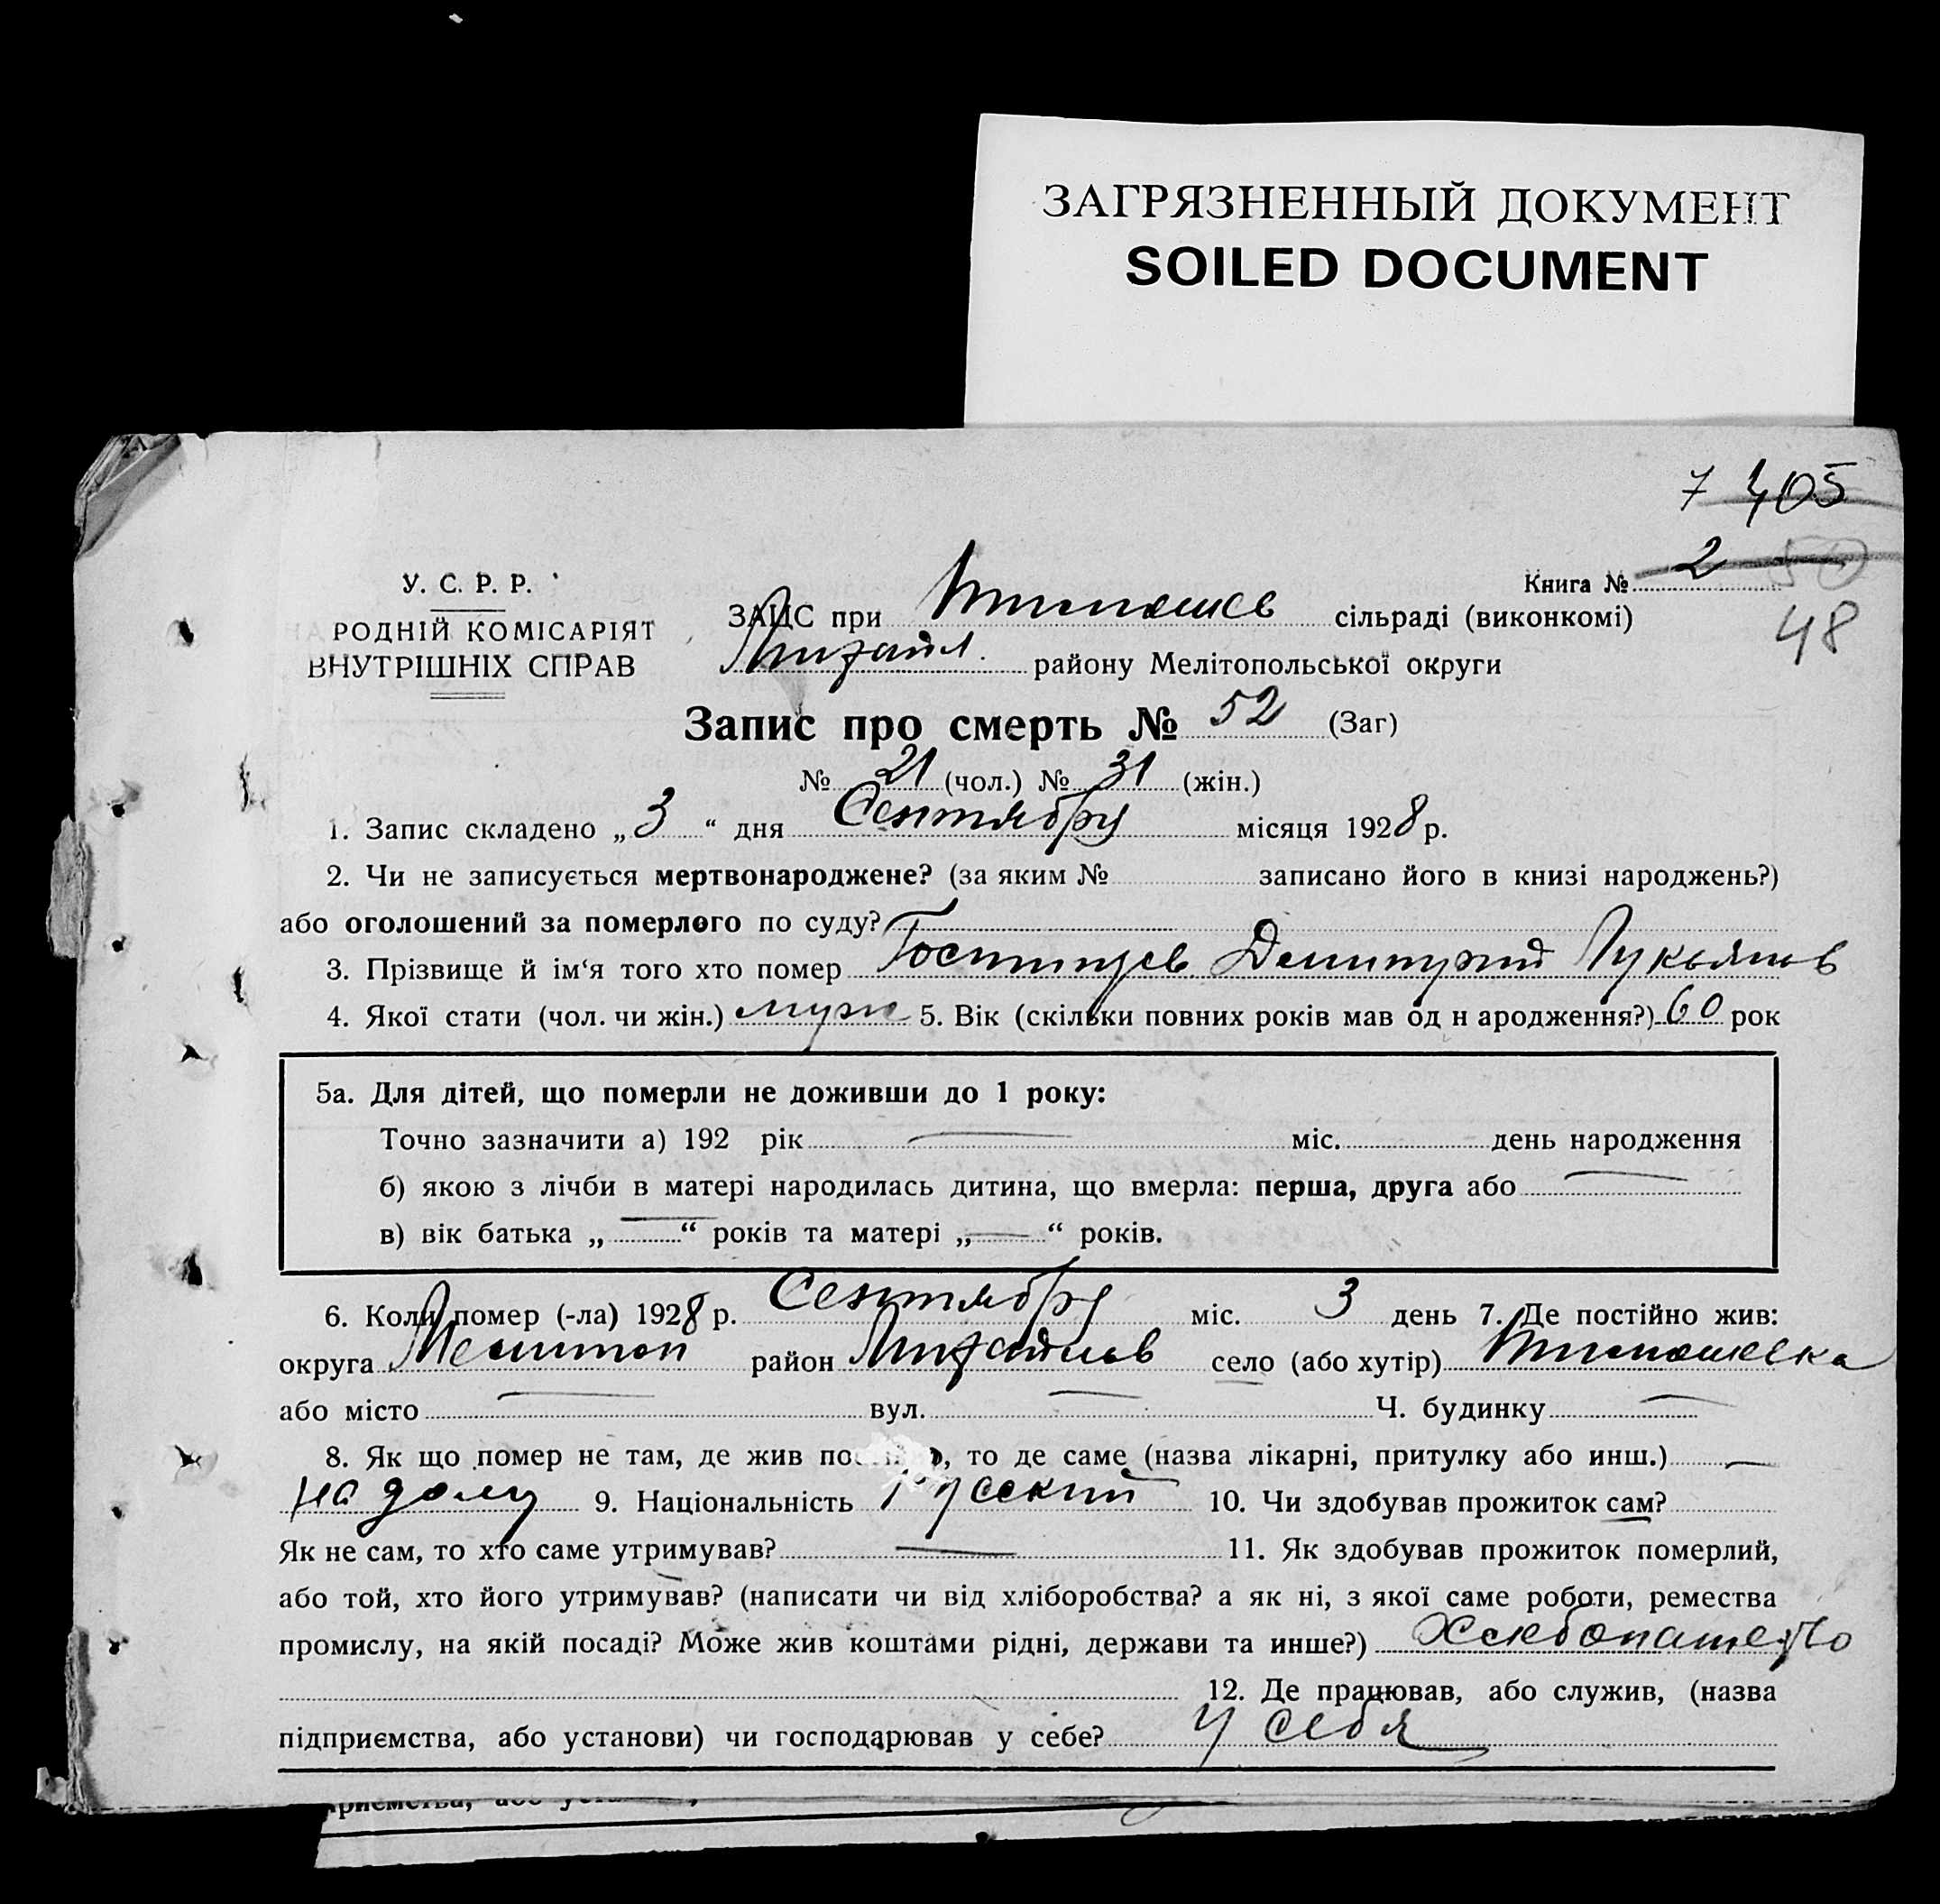 ЗАГРЯЗНЕННЫЙ ДОКУМЕНТ
SOILED DOCUMENT
7 405
Книга № 2 50
48
У. С. Р. Р.
РОДНІЙ КОМІСАРІЯТ
ВНУТРІШНІХ СПРАВ
ЗАЦС при Тимошев сільраді (виконкомі)
Михайл. району Мелітопольської округи
Запис про смерть № 52 (Заг)
№ 21 (чол.) № 31 (жін.)
1. Запис складено „3“ дня Сентября місяця 1928 р.
2. Чи не записується мертвонароджене? (за яким № записано його в книзі народжень?)
або оголошений за померлого по суду?
3. Прізвище й ім‘я того хто помер Гостищев Димитрий Лукьянов
4. Якої стати (чол. чи жін.) муж 5. Вік (скільки повних років мав од н ародження?) 60 рок
5а. Для дітей, що померли не доживши до 1 року:
Точно зазначити а) 192 рік міс. день народження
б) якою з лічби в матері народилась дитина, що вмерла: перша, друга або
в) вік батька „ “ років та матері „ “ років.
6. Коли помер (-ла) 1928 р. Сентября міс. 3 день 7. Де постійно жив:
округа Мелитоп район Михайлов село (або хутір) Тимошевка
або місто вул. Ч. будинку
8. Як що помер не там, де жив то де саме (назва лікарні, притулку або инш.)
на дому 9. Національність Русский 10. Чи здобував прожиток сам?
Як не сам, то хто саме утримував? 11. Як здобував прожиток померлий,
або той, хто його утримував? (написати чи від хліборобства? а як ні, з якої саме роботи, ремества
промислу, на якій посаді? Може жив коштами рідні, держави та инше?) Хлебопашество
12. Де працював, або служив, (назва
підприємства, або установи) чи господарював у себе? У себя